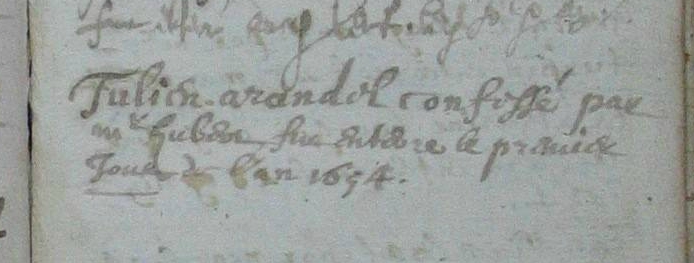 Julien arondel confessé par
mr huber fut entere le premier
Jour de l'an 1654.